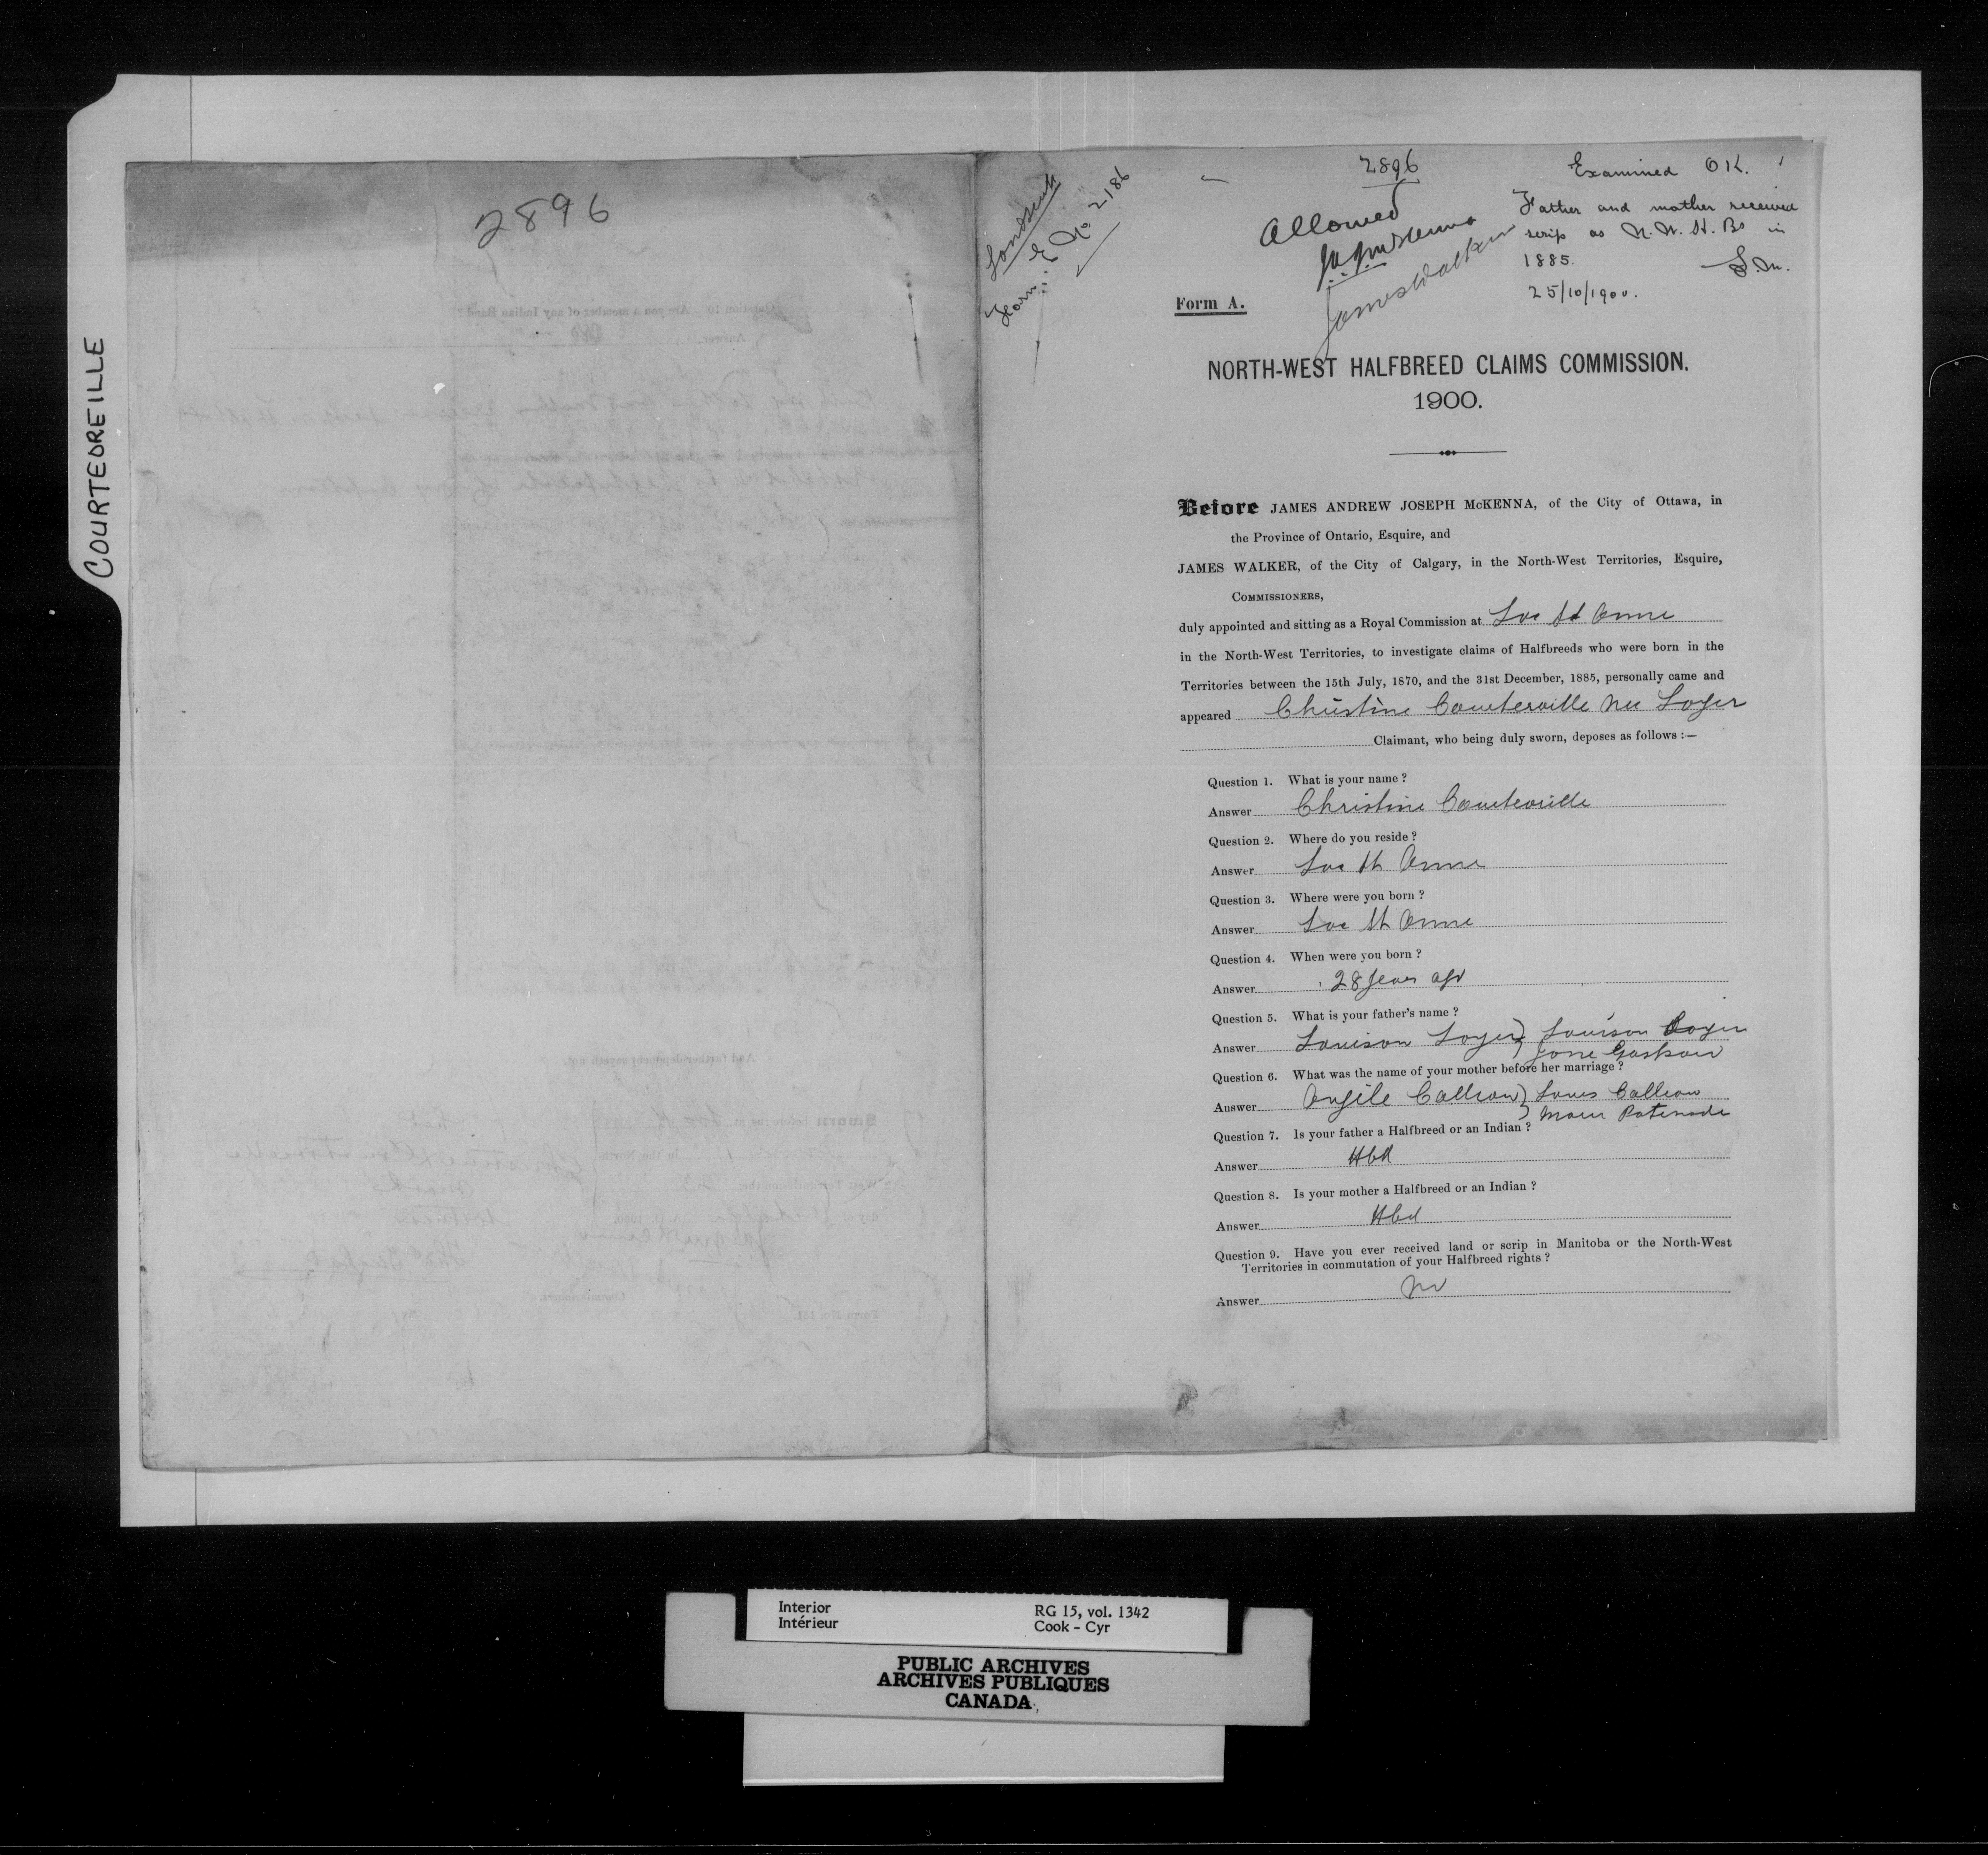 COURTEOREILLE
2896
Landscrip
Form E No. 2186
2896
Allowed
J.A.J. McKenna
James Walker
Examined OK.
Father and mother received
scrip as N.W. H. Bs in
1885.
25/10/1900.
Form A.
NORTH-WEST HALFBREED CLAIMS COMMISSION.
1900.
Before JAMES ANDREW JOSEPH McKENNA, of the City of Ottawa, in
the Province of Ontario, Esquire, and
JAMES WALKER, of the City of Calgary, in the North-West Territories, Esquire,
COMMISSIONERS,
duly appointed and sitting as a Royal Commission at Lac St Anne
in the North-West Territories, to investigate claims of Halfbreeds who were born in the
Territories between the 15th July, 1870, and the 31st December, 1885, personally came and
appeared Christine Courterville nee Loyer
Claimant, who being duly sworn, deposes as follows :—
Question 1. What is your name ?
Answer Christine Courteville
Question 2. Where do you reside ?
Answer Lac St Anne
Question 3. Where were you born ?
Answer Lac St Anne
Question 4. When were you born ?
Answer 28 years ago
Question 5. What is your father's name ?
Answer Louison Loyer } Louison Loyer
Question 6. What was the name of your mother before her marriage ?
Answer Angile Callioux } Louis Callioux
Question 7. Is your father a Halfbreed or an Indian ?
Answer Hbd
Question 8. Is your mother a Halfbreed or an Indian ?
Answer Hbd
Question 9. Have you ever received land or scrip in Manitoba or the North-West
Territories in commutation of your Halfbreed rights ?
Answer No
Interior
Intérieur
RG 15, vol. 1342
Cook - Cyr
PUBLIC ARCHIVES
ARCHIVES PUBLIQUES
CANADA